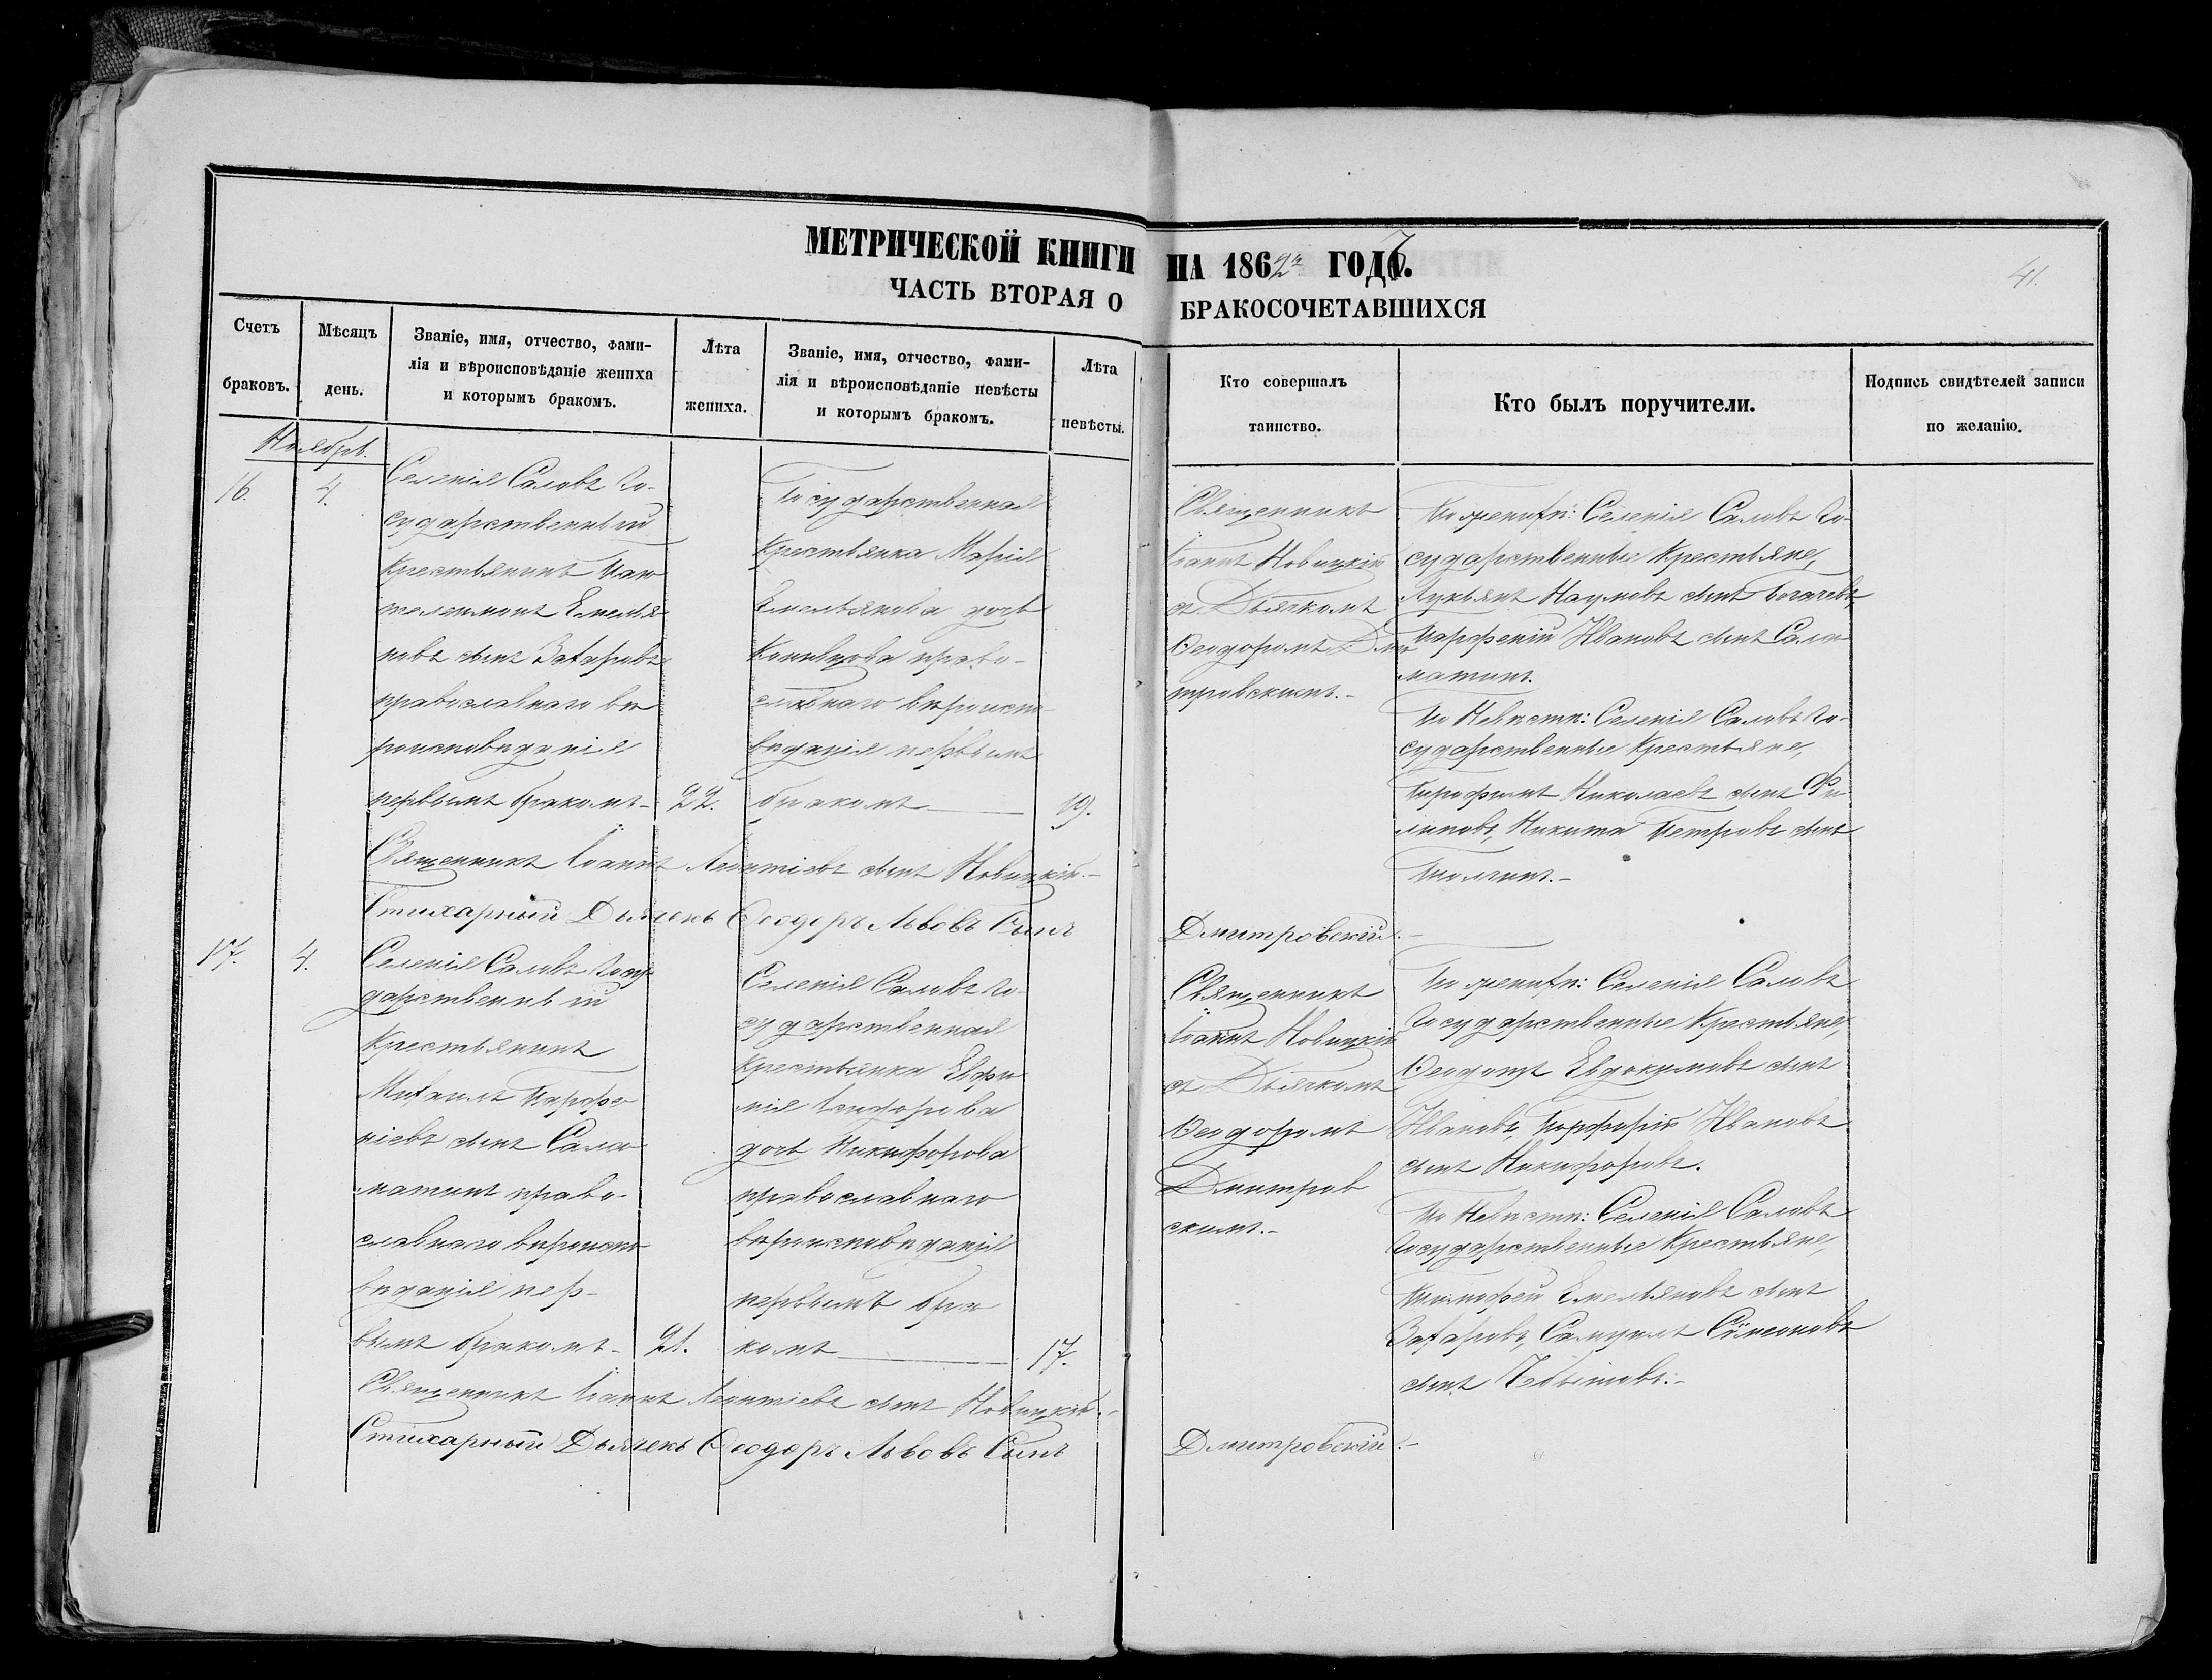 МЕТРИЧЕСКОЙ КНИГИ НА 1862й ГОДЪ.
41.
ЧАСТЬ ВТОРАЯ О БРАКОСОЧЕТАВШИХСЯ
Счетъ браковъ.
Мѣсяцъ день.
Званіе, имя, отчество, фами-
лія и вѣроисповѣданіе жениха
и которымъ бракомъ.
Лѣта жениха.
Званіе, имя, отчество, фами-
лія и вѣроисповѣданіе невѣсты
и которымъ бракомъ.
Лѣта невѣсты.
Кто совершалъ
таинство.
Кто былъ поручители.
Подпись свидѣтелей записи
по желанію.
Ноябрь.
16.
4.
Селенія Саловъ Го-
сударственный
Крестьянинъ Пан
телеимонъ Емелья
новъ сынъ Захаровъ
православнаго вѣ
роисповѣданія
первымъ бракомъ-
22.
Государственная
Крестьянка Марія
Емельянова дочь
право-
славнаго вѣроиспо
вѣданія первымъ
бракомъ
19.
Священникъ
Іоаннъ Новицкій
съ Дьячкомъ
Ѳеодоромъ Дми
тровскимъ.-
По женихѣ: Селенія Саловъ Го-
сударственные Крестьяне,
Лукьянъ Наумовъ сынъ Богачевъ,
Парфеній Ивановъ сынъ Сала
матинъ.
По Невѣстѣ: Селенія Саловъ Го-
сударственные Крестьяне,
Трофимъ Николаевъ сынъ Фи
липовъ, Никита Петровъ сынъ
Священникъ Іоаннъ Леонтіевъ сынъ Новицкій.-
Стихарный Дьячекъ Ѳеодоръ Львовъ Сынъ Дмитровскій.-
17.
4.
Селенія Саловъ Госу
дарственный
Крестьянинъ
Михаилъ Парфе
ніевъ сынъ Сала
матинъ право-
славнаго вѣроиспо
вѣданія пер-
вымъ бракомъ-
21.
Селенія Саловъ Го-
сударственная
Крестьянка Евфи
мія Исидорова
дочь Никифорова
православнаго
вѣроисповѣданія
первымъ бра
комъ
17.
Священникъ
Іоаннъ Новицкій
съ Дьячкомъ
Ѳеодоромъ
Дмитров
скимъ.-
По женихѣ: Селенія Саловъ
Государственные Крестьяне,
Ѳеодотъ Евдокимовъ сынъ
Ивановъ, Порфирій Ивановъ
сынъ Никифоровъ.
По Невѣстѣ: Селенія Саловъ
Государственные Крестьяне,
Тимофей Емельяновъ сынъ
Захаровъ, Самуилъ Сѵмеоновъ
сынъ
Священникъ Іоаннъ Леонтіевъ сынъ Новицкій.-
Стихарный Дьячекъ Ѳеодоръ Львовъ Сынъ Дмитровскій.-